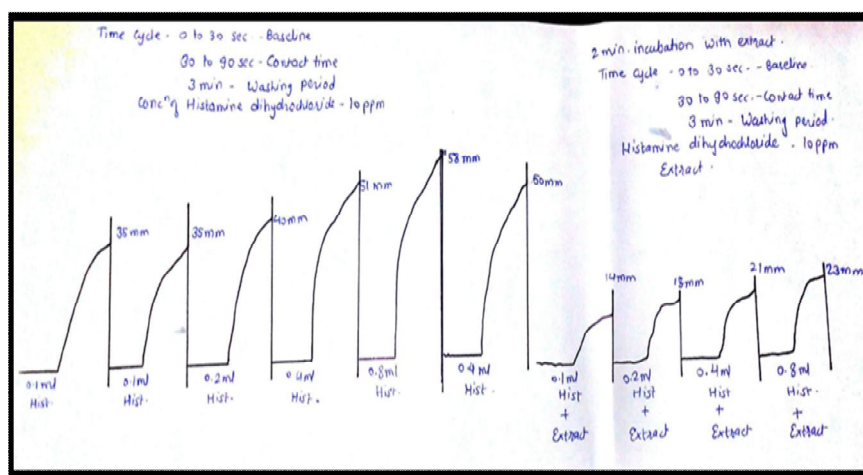 Time Cycle - 0 to 30 sec - Baseline
30 to 90 sec - Contact time
3 min - Washing period
Concⁿ of Histamine dihydochloride - 10ppm
2 min. incubation with extract.
Time Cycle - 0 to 30 sec. - Baseline
30 to 90 sec. - Contact time
3 min - Washing period.
Histamine dihydochloride - 10ppm
Extract.
35mm
35mm
40mm
51mm
58mm
50mm
14mm
18mm
21mm
23mm
0.1ml
Hist.
0.1ml
Hist.
0.2ml
Hist.
0.4ml
Hist.
0.8ml
Hist.
0.4ml
Hist.
0.1ml
Hist
+
Extract
0.2ml
Hist
+
Extract
0.4ml
Hist
+
Extract
0.8ml
Hist.
+
Extract